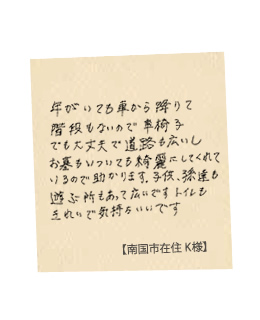 年がいても車から降りて
階段もないので車椅子
でも大丈夫で道路も広いし
お墓もいついても綺麗にしてくれて
いるので助かります。子供、孫達も
遊ぶ所もあって広いですトイレも
きれいで気持ちいいです
【南国市在住 K様】